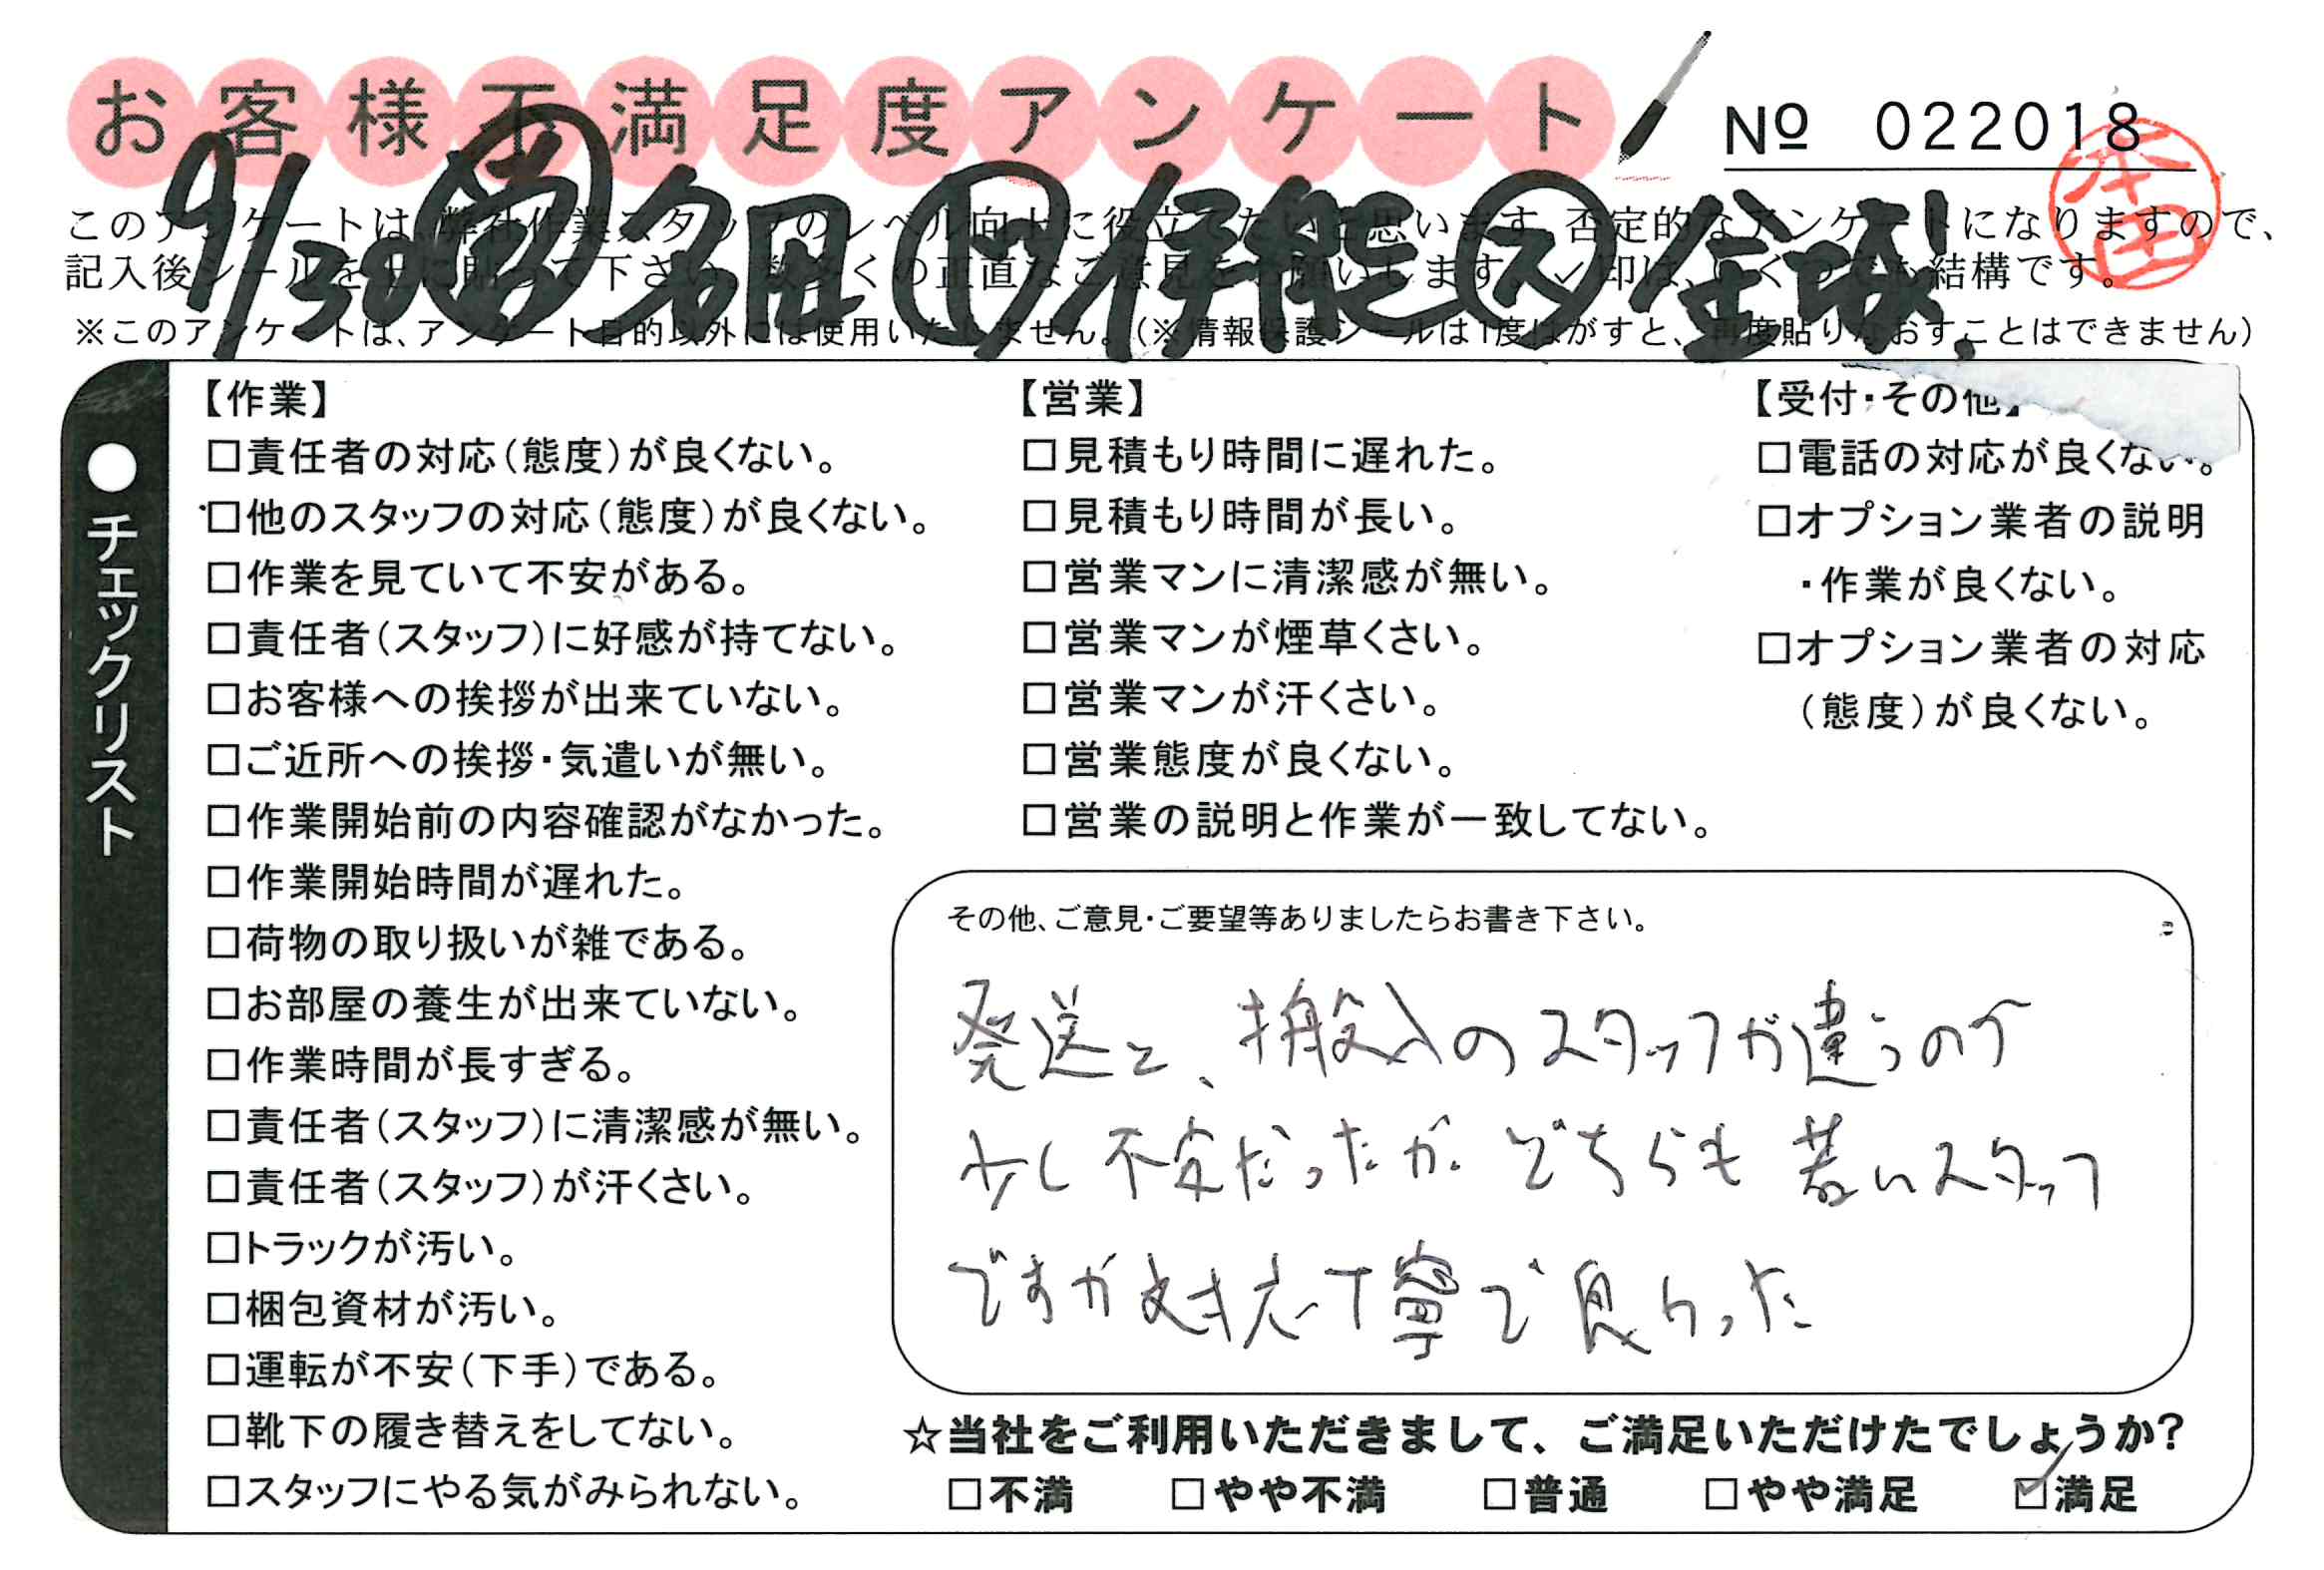 お客様不満足度アンケート
№ 022018
9/30 営 名田 ド 伊熊 ス 金城
本田
このアンケートは、弊社作業スタッフのレベル向上に役立てたいと思います。否定的なアンケートになりますので、
記入後シールを上に貼って下さい。数多くの正直なご意見をお願いします。✓印は、いくつでも結構です。
※このアンケートは、アンケート目的以外には使用いたしません。（※情報保護シールは1度はがすと、再度貼りなおすことはできません）
●チェックリスト
【作業】
□責任者の対応（態度）が良くない。
□他のスタッフの対応（態度）が良くない。
□作業を見ていて不安がある。
□責任者（スタッフ）に好感が持てない。
□お客様への挨拶が出来ていない。
□ご近所への挨拶・気遣いが無い。
□作業開始前の内容確認がなかった。
□作業開始時間が遅れた。
□荷物の取り扱いが雑である。
□お部屋の養生が出来ていない。
□作業時間が長すぎる。
□責任者（スタッフ）に清潔感が無い。
□責任者（スタッフ）が汗くさい。
□トラックが汚い。
□梱包資材が汚い。
□運転が不安（下手）である。
□靴下の履き替えをしてない。
□スタッフにやる気がみられない。
【営業】
□見積もり時間に遅れた。
□見積もり時間が長い。
□営業マンに清潔感が無い。
□営業マンが煙草くさい。
□営業マンが汗くさい。
□営業態度が良くない。
□営業の説明と作業が一致してない。
【受付・その他】
□電話の対応が良くない。
□オプション業者の説明
・作業が良くない。
□オプション業者の対応
（態度）が良くない。
その他、ご意見・ご要望等ありましたらお書き下さい。
発送と、搬入のスタッフが違うので
少し不安だったが、どちらも若いスタッフ
ですが対応丁寧で良かった
☆当社をご利用いただきまして、ご満足いただけたでしょうか？
□不満 □やや不満 □普通 □やや満足 ☑満足